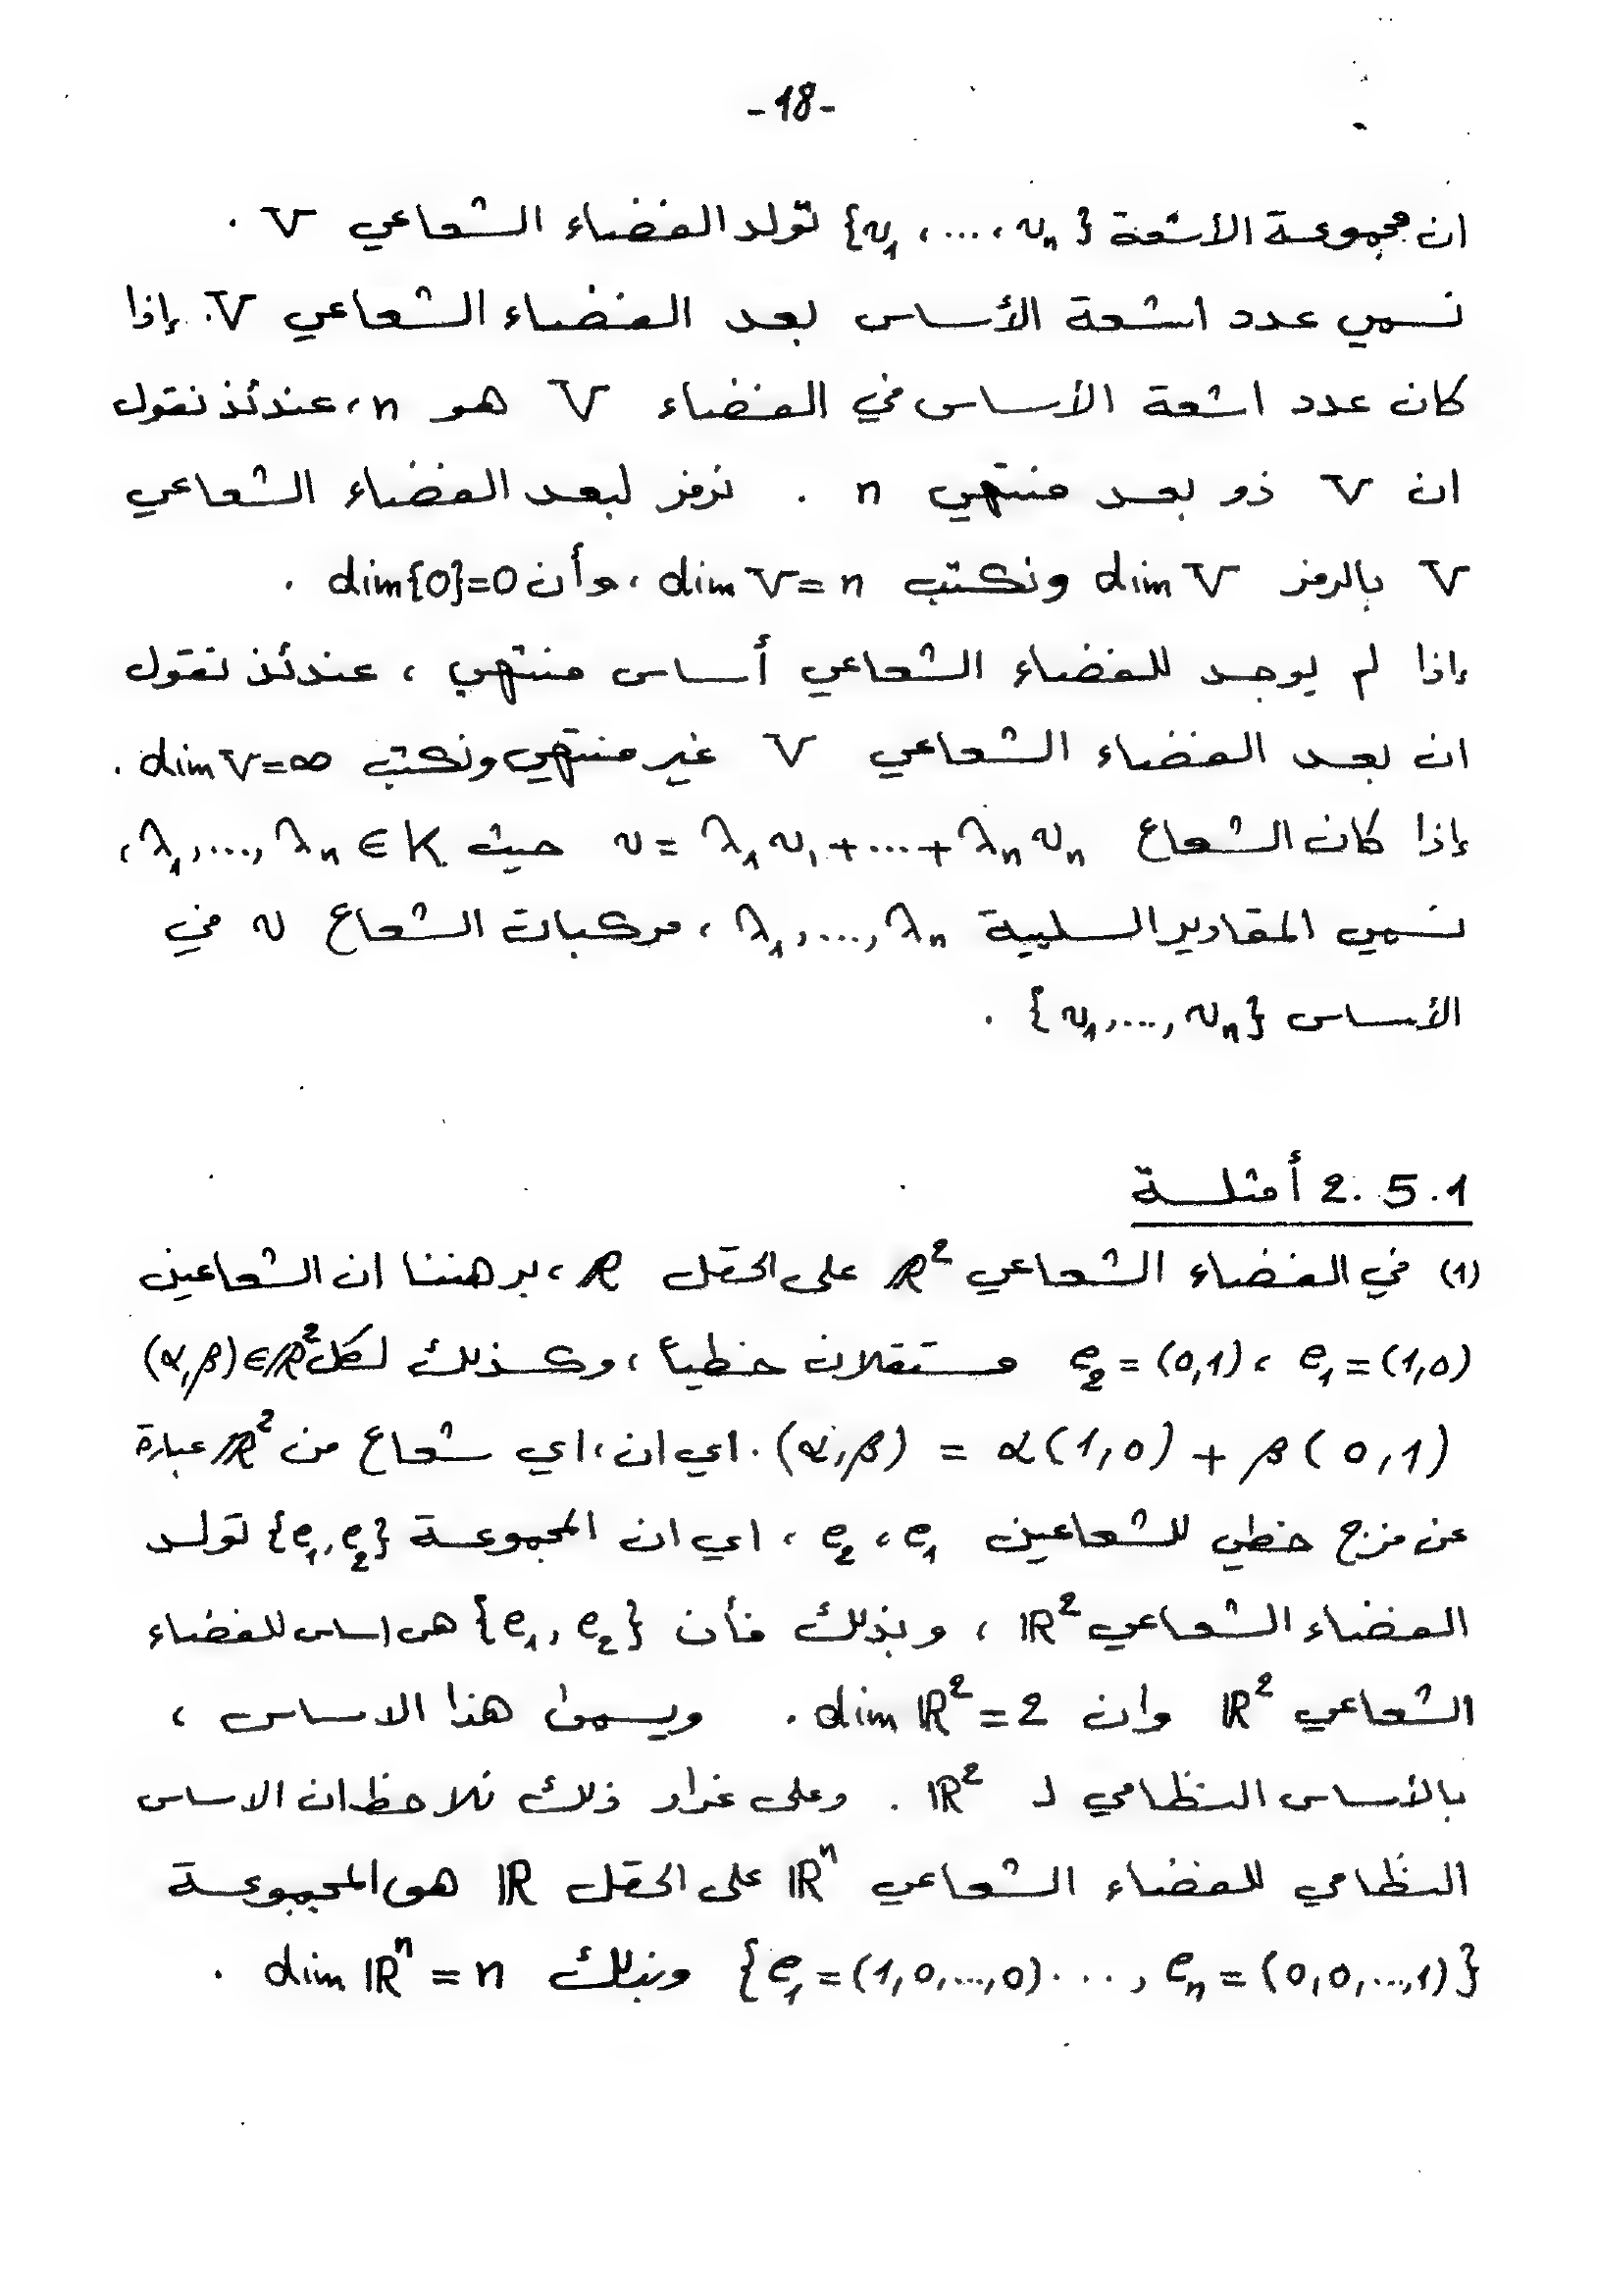 -18-
ان مجموعة الأشعة {v₁, ..., vₙ} تولد الفضاء الشعاعي V .
نسمي عدد اشعة الأساس بعد الفضاء الشعاعي V. إذا
كان عدد اشعة الأساس في الفضاء V هو n، عندئذ نقول
ان V ذو بعد منتهي n . نرمز لبعد الفضاء الشعاعي
V بالرمز dim V ونكتب dim V = n ، وأن dim{0}=0 .
إذا لم يوجد للفضاء الشعاعي أساس منتهي ، عندئذ نقول
ان بعد الفضاء الشعاعي V غير منتهي ونكتب dim V=∞ .
إذا كان الشعاع v = λ₁v₁ + ... + λₙvₙ حيث λ₁, ..., λₙ ∈ K ،
نسمي المقادير السلمية λ₁, ..., λₙ ، مركبات الشعاع v في
الأساس {v₁, ..., vₙ} .
2.5.1 أمثلة
(1) في الفضاء الشعاعي ℝ² على الحقل ℝ ، برهننا ان الشعاعين
e₁ = (1,0) ، e₂ = (0,1) مستقلان خطياً ، وكذلك لكل (α,β)∈ℝ²
(α,β) = α(1,0) + β(0,1) . اي ان ، اي شعاع من ℝ² عبارة
عن مزج خطي للشعاعين e₁ ، e₂ ، اي ان المجموعة {e₁, e₂} تولد
الفضاء الشعاعي ℝ² ، وبذلك فأن {e₁, e₂} هي اساس للفضاء
الشعاعي ℝ² وان dim ℝ² = 2 . ويسمى هذا الاساس ،
بالأساس النظامي لـ ℝ² . وعلى غرار ذلك نلاحظ ان الاساس
النظامي للفضاء الشعاعي ℝⁿ على الحقل ℝ هو المجموعة
{e₁ = (1,0,...,0) ..., eₙ = (0,0,...,1)} وبذلك dim ℝⁿ = n .